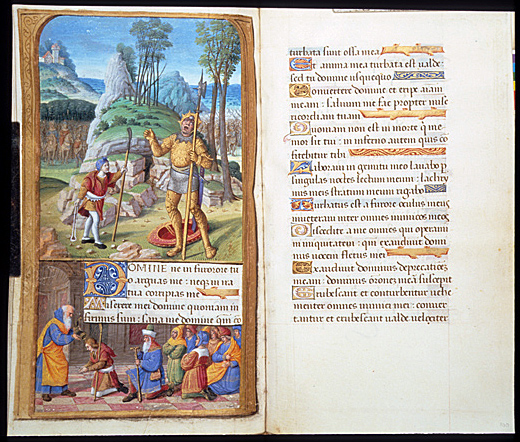 DOMINE ne in furore tu
o arguas me: neq; in ira
tua corripias me
Miserere mei domine quoniam in
firmus sum: sana me domine qm̄ co
turbata sunt ossa mea
Et anima mea turbata est valde:
sed tu domine usquequo
Convertere domine et eripe animam
meam: salvum me fac propter mise
ricordiam tuam
Quoniam non est in morte q̄ me
mor sit tui: in inferno autem quis co
fitebitur tibi
Laboravi in gemitu meo lavabo p
singulas noctes lectum meum: lachry
mis meis stratum meum rigabo
Turbatus est a furore oculus meus
inveteravi inter omnes inimicos meos
Discedite a me omnes qui opera
mini iniquitatem: qm̄ exaudivit domi
nus vocem fletus mei
Exaudivit dominus deprecationē
meam: dominus orationē meā suscepit
Erubescant et conturbentur vehe
menter omnes inimici mei: conver
tantur et erubescant valde velociter